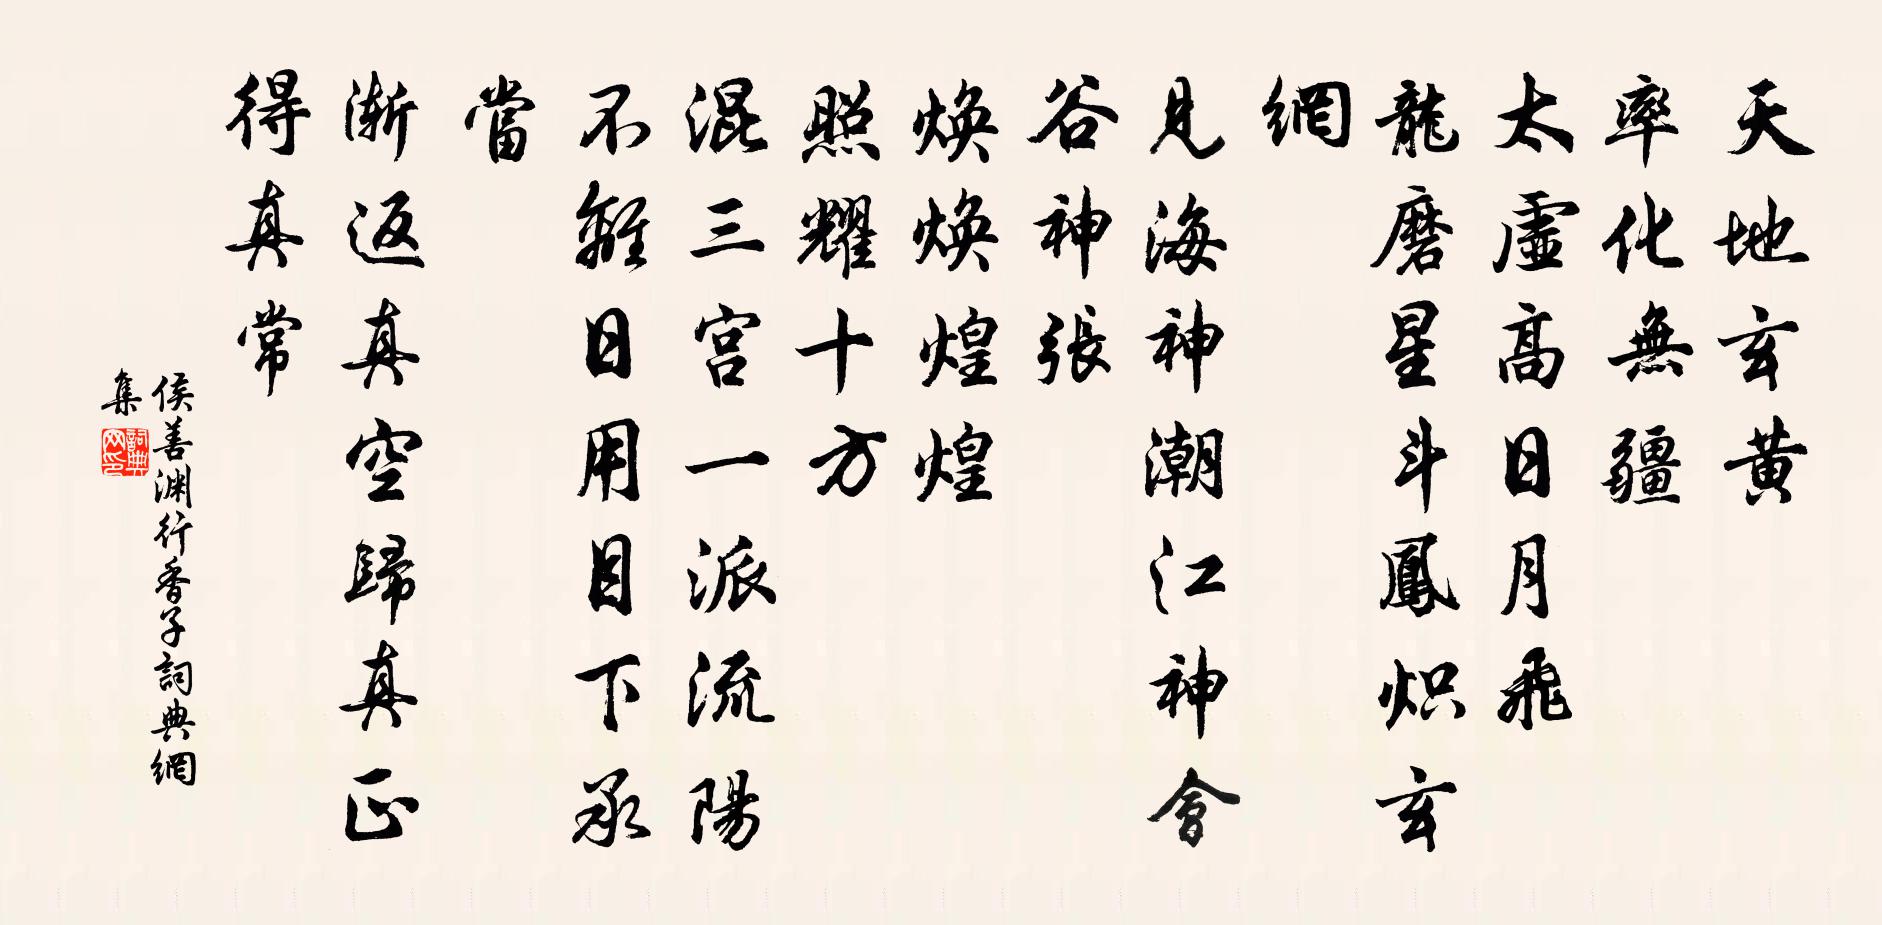 天地玄黄
率化無疆
太虛高日月飛
龍磨星斗鳳炽玄
網
見海神潮江神會
谷神張
煥煥煌煌
照耀十方
混三宮一派流陽
不離日用目下承
當
漸返真空歸真正
得真常
侯善渊行香子詞典網
集
詞典
网印